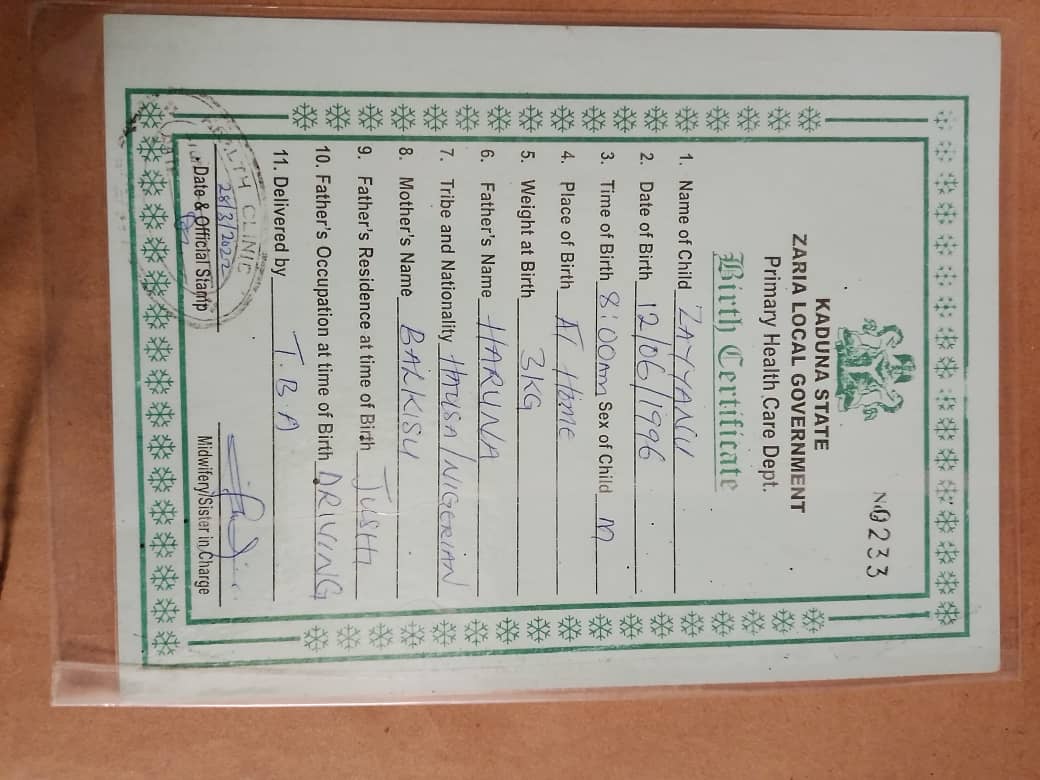 No 0233
KADUNA STATE
ZARIA LOCAL GOVERNMENT
Primary Health Care Dept.
Birth Certificate
1. Name of Child ZAYYANU
2. Date of Birth 12/06/1996
3. Time of Birth 8:00Am Sex of Child M
4. Place of Birth AT Home
5. Weight at Birth 3KG
6. Father's Name HARUNA
7. Tribe and Nationality HAUSA/NIGERIAN
8. Mother's Name BARKISU
9. Father's Residence at time of Birth JUSHI
10. Father's Occupation at time of Birth DRIVING
11. Delivered by T.B.A
HEALTH CLINIC
28/3/2022
Date & Official Stamp
Midwifery/Sister in Charge